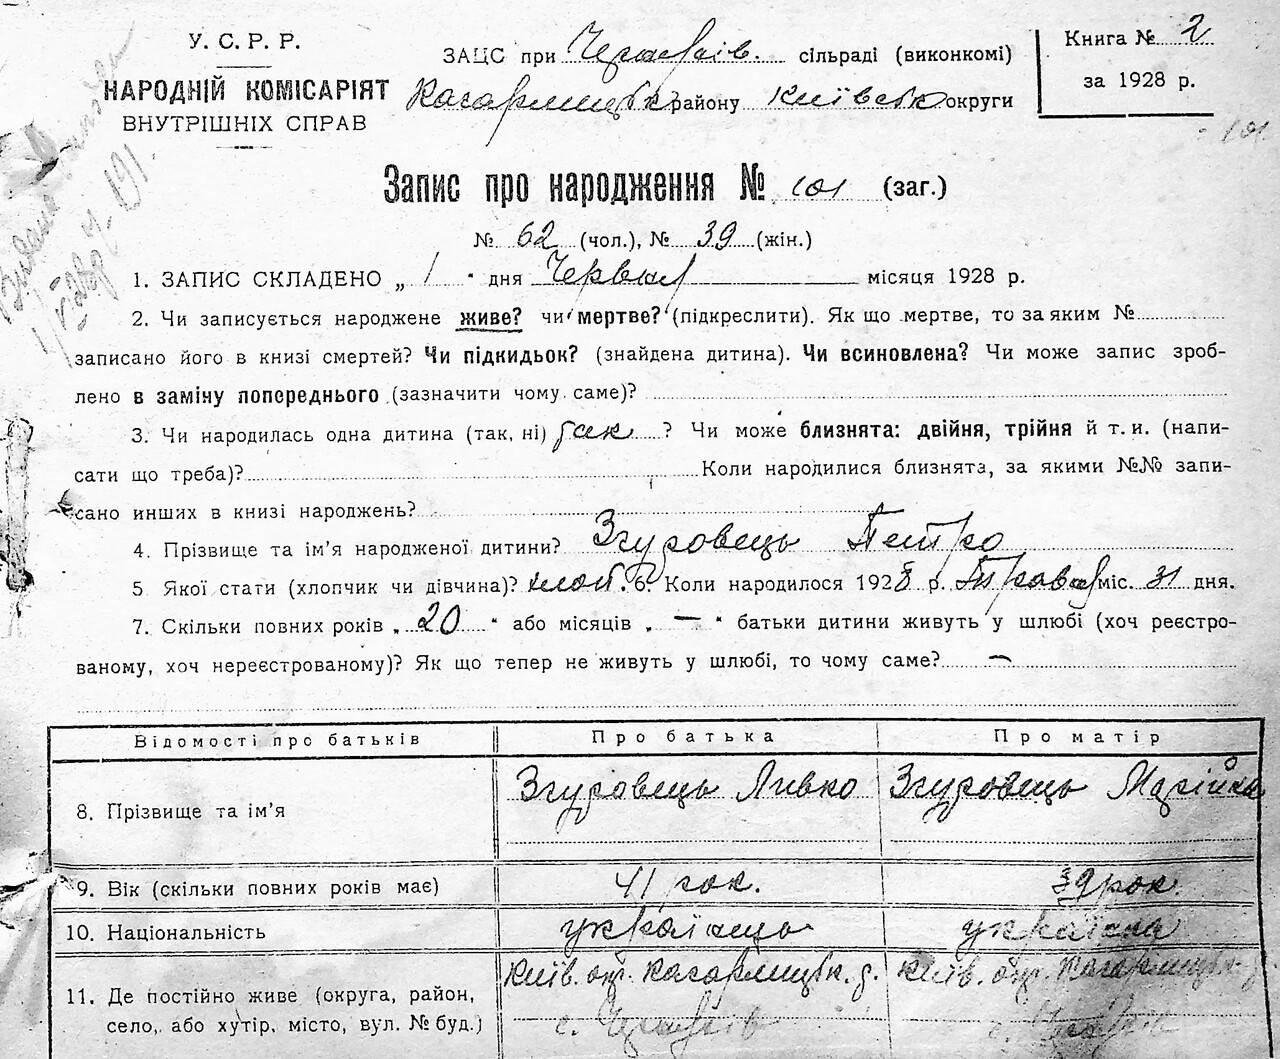 У. С. Р. Р.
НАРОДНІЙ КОМІСАРІЯТ
ВНУТРІШНІХ СПРАВ
ЗАЦС при сільраді (виконкомі)
Кагарлицьк району Київськ округи
Книга № 2
за 1928 р.
101
Запис про народження № 101 (заг.)
№ 62 (чол.), № 39 (жін.)
1. ЗАПИС СКЛАДЕНО „ 1 " дня Червня місяця 1928 р.
2. Чи записується народжене живе? чи мертве? (підкреслити). Як що мертве, то за яким №
записано його в книзі смертей? Чи підкидьок? (знайдена дитина). Чи всиновлена? Чи може запис зроб-
лено в заміну попереднього (зазначити чому саме)?
3. Чи народилась одна дитина (так, ні) так ? Чи може близнята: двійня, трійня й т. и. (напи-
сати що треба)? Коли народилися близнята, за якими №№ запи-
сано инших в книзі народжень?
4. Прізвище та ім'я народженої дитини? Згуровець Петро
5. Якої стати (хлопчик чи дівчина)? хлоп. 6. Коли народилося 1928 р. Травня міс. 31 дня.
7. Скільки повних років „ 20 " або місяців „ — " батьки дитини живуть у шлюбі (хоч реєстро-
ваному, хоч нереєстрованому)? Як що тепер не живуть у шлюбі, то чому саме? —
Відомості про батьків Про батька Про матір
8. Прізвище та ім'я Згуровець Ливко Згуровець Марійка
9. Вік (скільки повних років має) 41 рок. 39 рок.
10. Національність українець українка
11. Де постійно живе (округа, район, село, або хутір, місто, вул. № буд.) Київ. окр. Кагарлицьк. р. с. Київ. окр. Кагарлицьк. р. с.